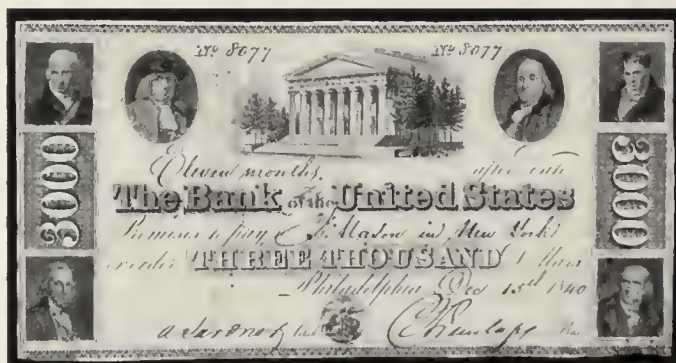 No 8077 No 8077
Eleven months after date
The Bank of the United States
Promise to pay Mason in New York
or order THREE THOUSAND
Philadelphia Dec 15th 1840
3000 3000